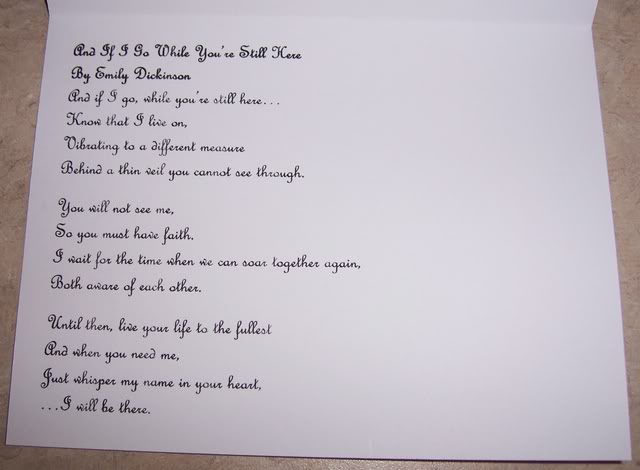 And If I Go While You're Still Here
By Emily Dickinson
And if I go, while you're still here...
Know that I live on,
Vibrating to a different measure
Behind a thin veil you cannot see through.
You will not see me,
So you must have faith.
I wait for the time when we can soar together again,
Both aware of each other.
Until then, live your life to the fullest
And when you need me,
Just whisper my name in your heart,
...I will be there.